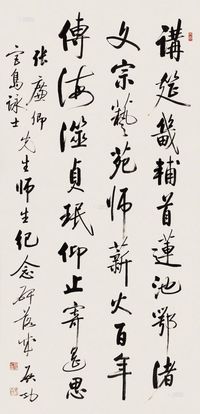 講筵畿輔首蓮池鄂渚
文宗藝苑師薪火百年
傳海澨貞珉仰止寄遐思
張廉卿
宮島詠士先生師生紀念碑落成 启功